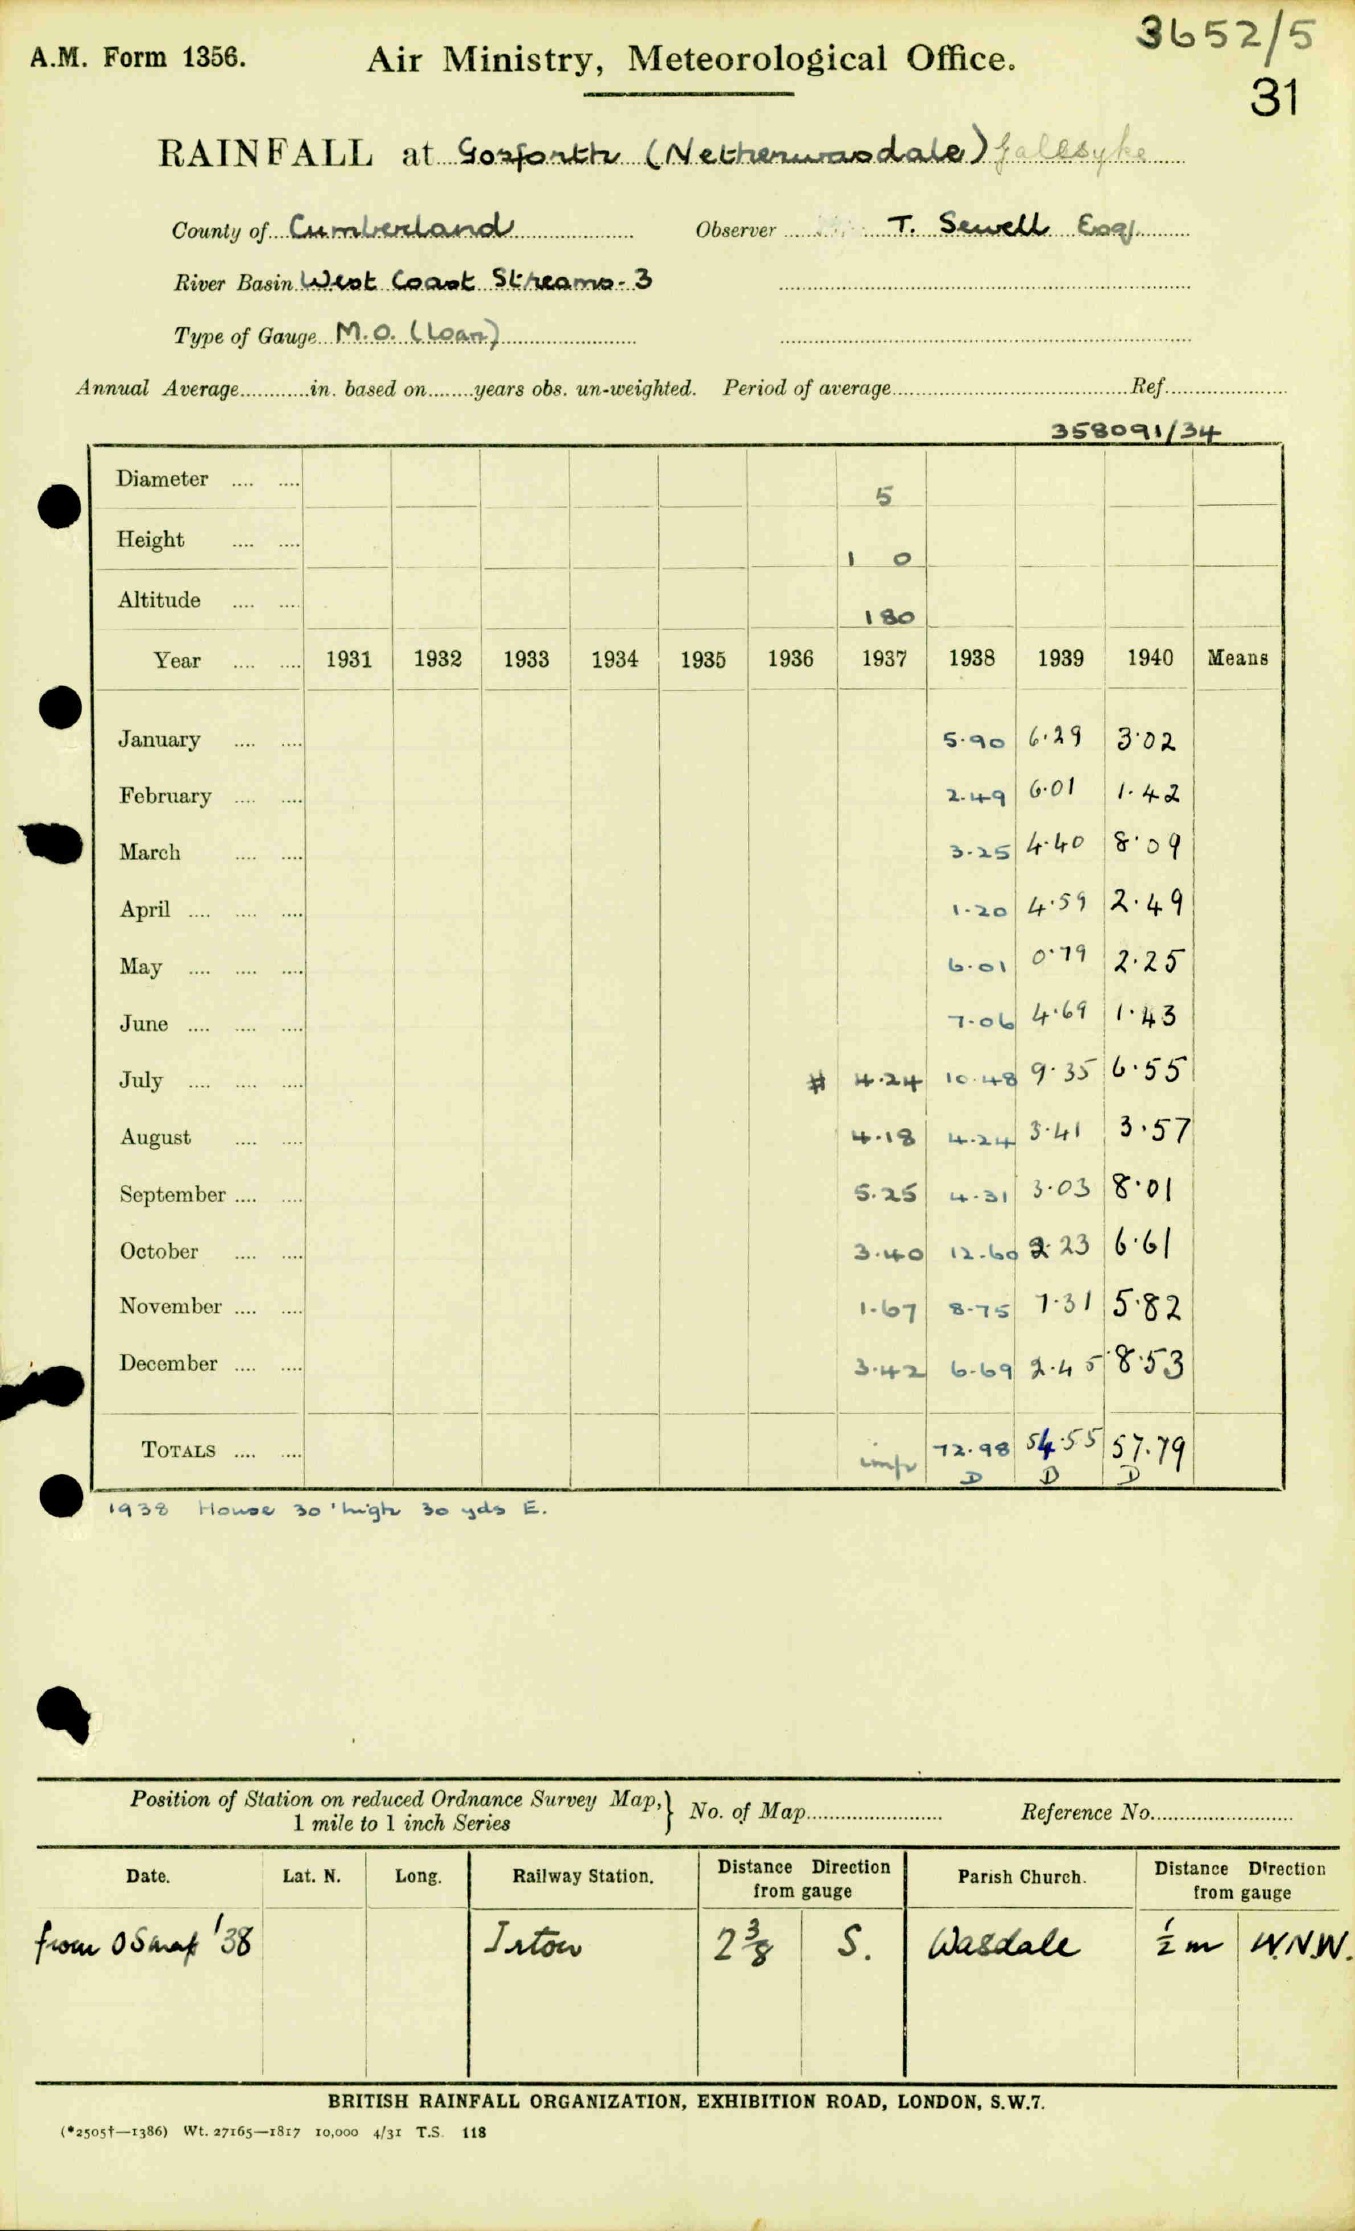 3652/5
A.M. Form 1356. Air Ministry, Meteorological Office.
31
RAINFALL at Gosforth (Netherwasdale) Gallesyke
County of Cumberland Observer T. Sewell Esq.
River Basin West Coast Streams - 3
Type of Gauge M.O. (Loan)
Annual Average............in. based on........years obs. un-weighted. Period of average........................Ref.....................
358091/34
Diameter .... .... 5
Height .... .... 1 0
Altitude .... .... 180
Year .... .... 1931 1932 1933 1934 1935 1936 1937 1938 1939 1940 Means
January .... .... 5.90 6.29 3.02
February .... .... 2.49 6.01 1.42
March .... .... 3.25 4.40 8.09
April .... .... .... 1.20 4.59 2.49
May .... .... .... 6.01 0.79 2.25
June .... .... .... 7.06 4.69 1.43
July .... .... .... # 4.24 10.48 9.35 6.55
August .... .... 4.18 4.24 3.41 3.57
September .... .... 5.25 4.31 3.03 8.01
October .... .... 3.40 12.60 2.23 6.61
November .... .... 1.67 8.75 7.31 5.82
December .... .... 3.42 6.69 2.45 8.53
TOTALS .... .... imp 72.98 54.55 57.79
D D D
1938 House 30' high 30 yds E.
Position of Station on reduced Ordnance Survey Map, 1 mile to 1 inch Series } No. of Map........................ Reference No.........................
Date. Lat. N. Long. Railway Station. Distance Direction from gauge Parish Church. Distance Direction from gauge
from OS map '38 Irton 2 3/8 S. Wasdale 1/2 m W.N.W.
BRITISH RAINFALL ORGANIZATION, EXHIBITION ROAD, LONDON, S.W.7.
(*2505†—1386) Wt. 27165—1817 10,000 4/31 T.S. 118